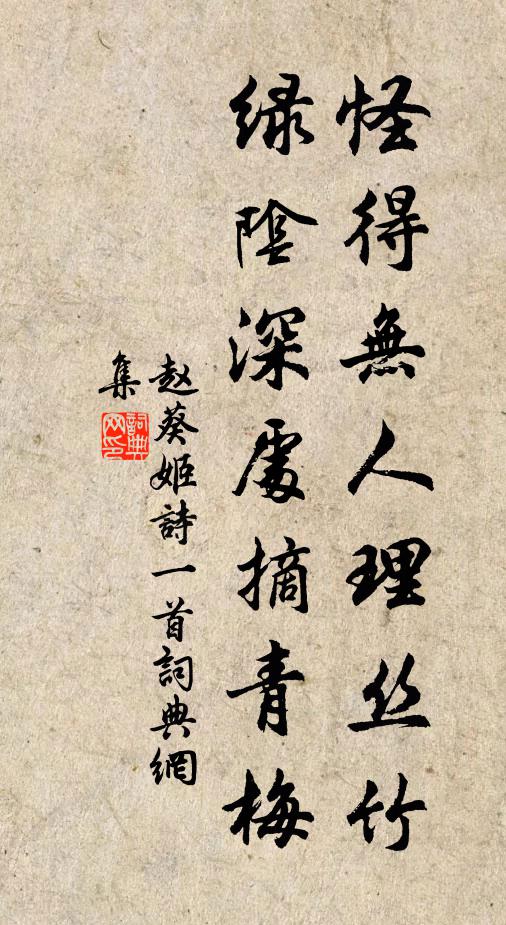 怪得無人理丝竹
緑陰深處摘青梅
赵葵姬詩一首詞典網
集
詞典网印